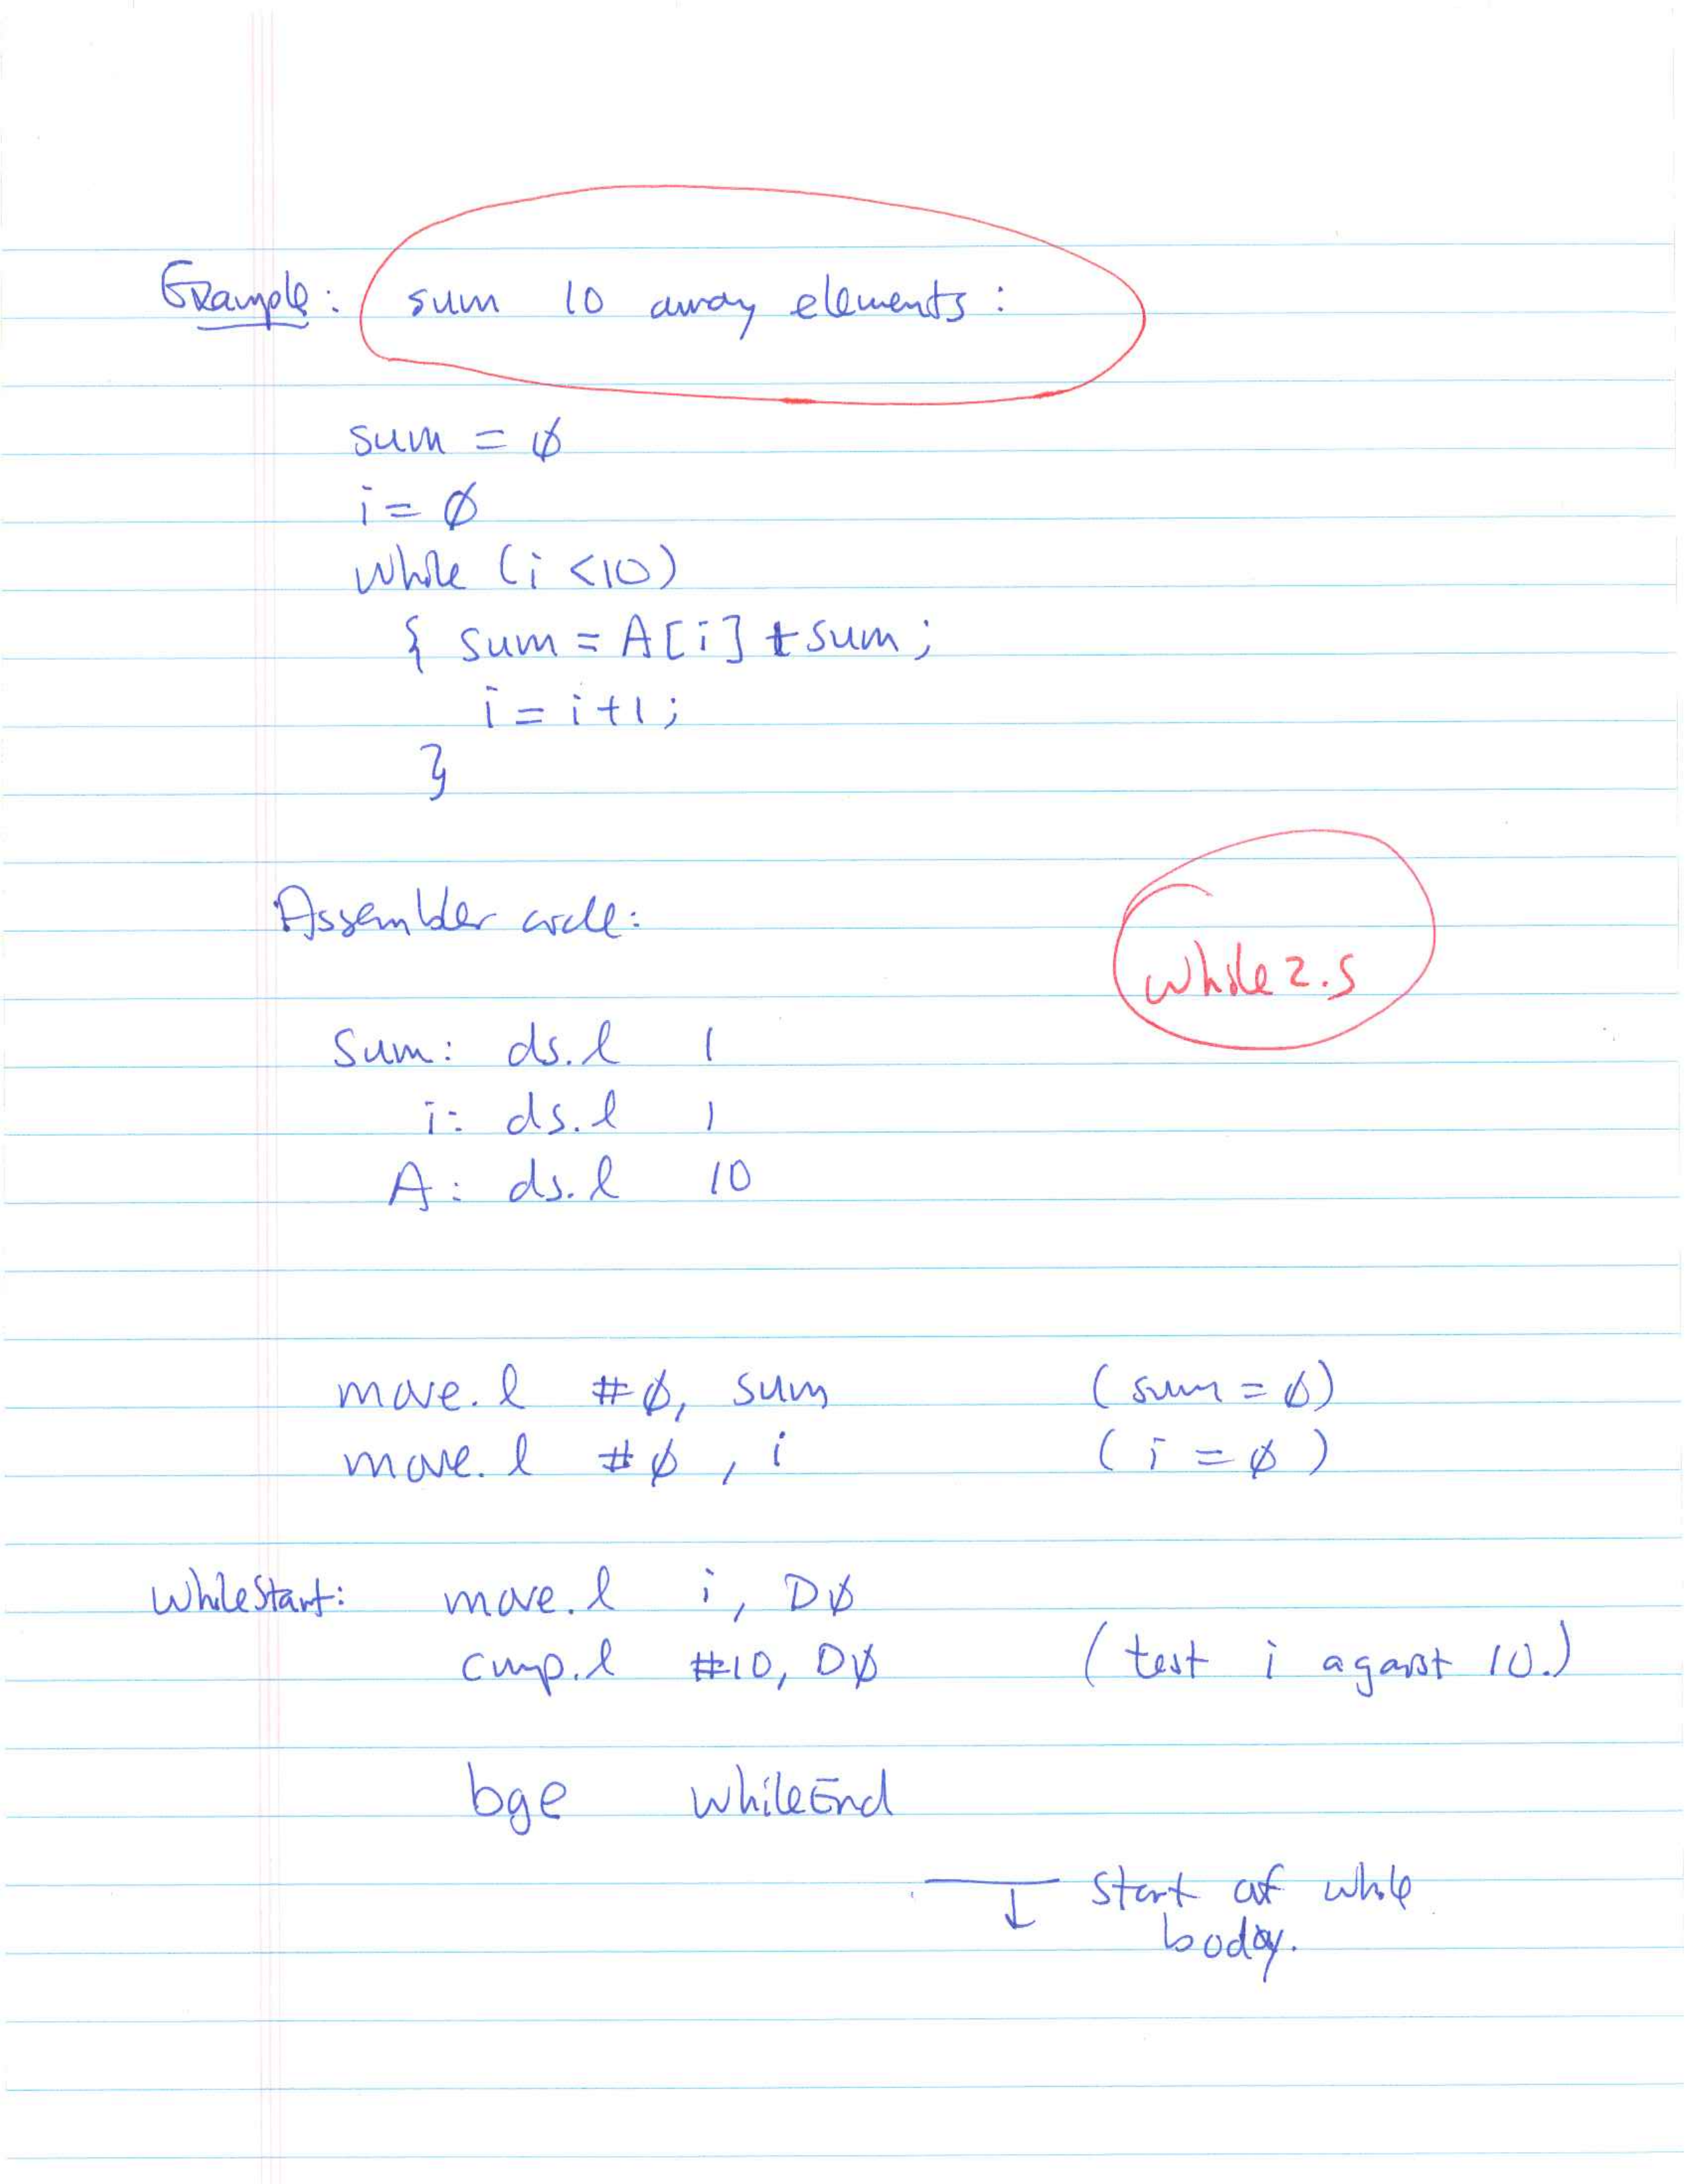 Example: sum 10 array elements:
sum = ∅
i = ∅
while (i < 10)
{ sum = A[i] + sum;
i = i+1;
}
Assembler code:
while2.s
Sum: ds.l 1
i: ds.l 1
A: ds.l 10
move.l #∅, sum (sum = ∅)
move.l #∅, i (i = ∅)
WhileStart: move.l i, D∅
cmp.l #10, D∅ (test i against 10.)
bge WhileEnd
↓ start of while
body.